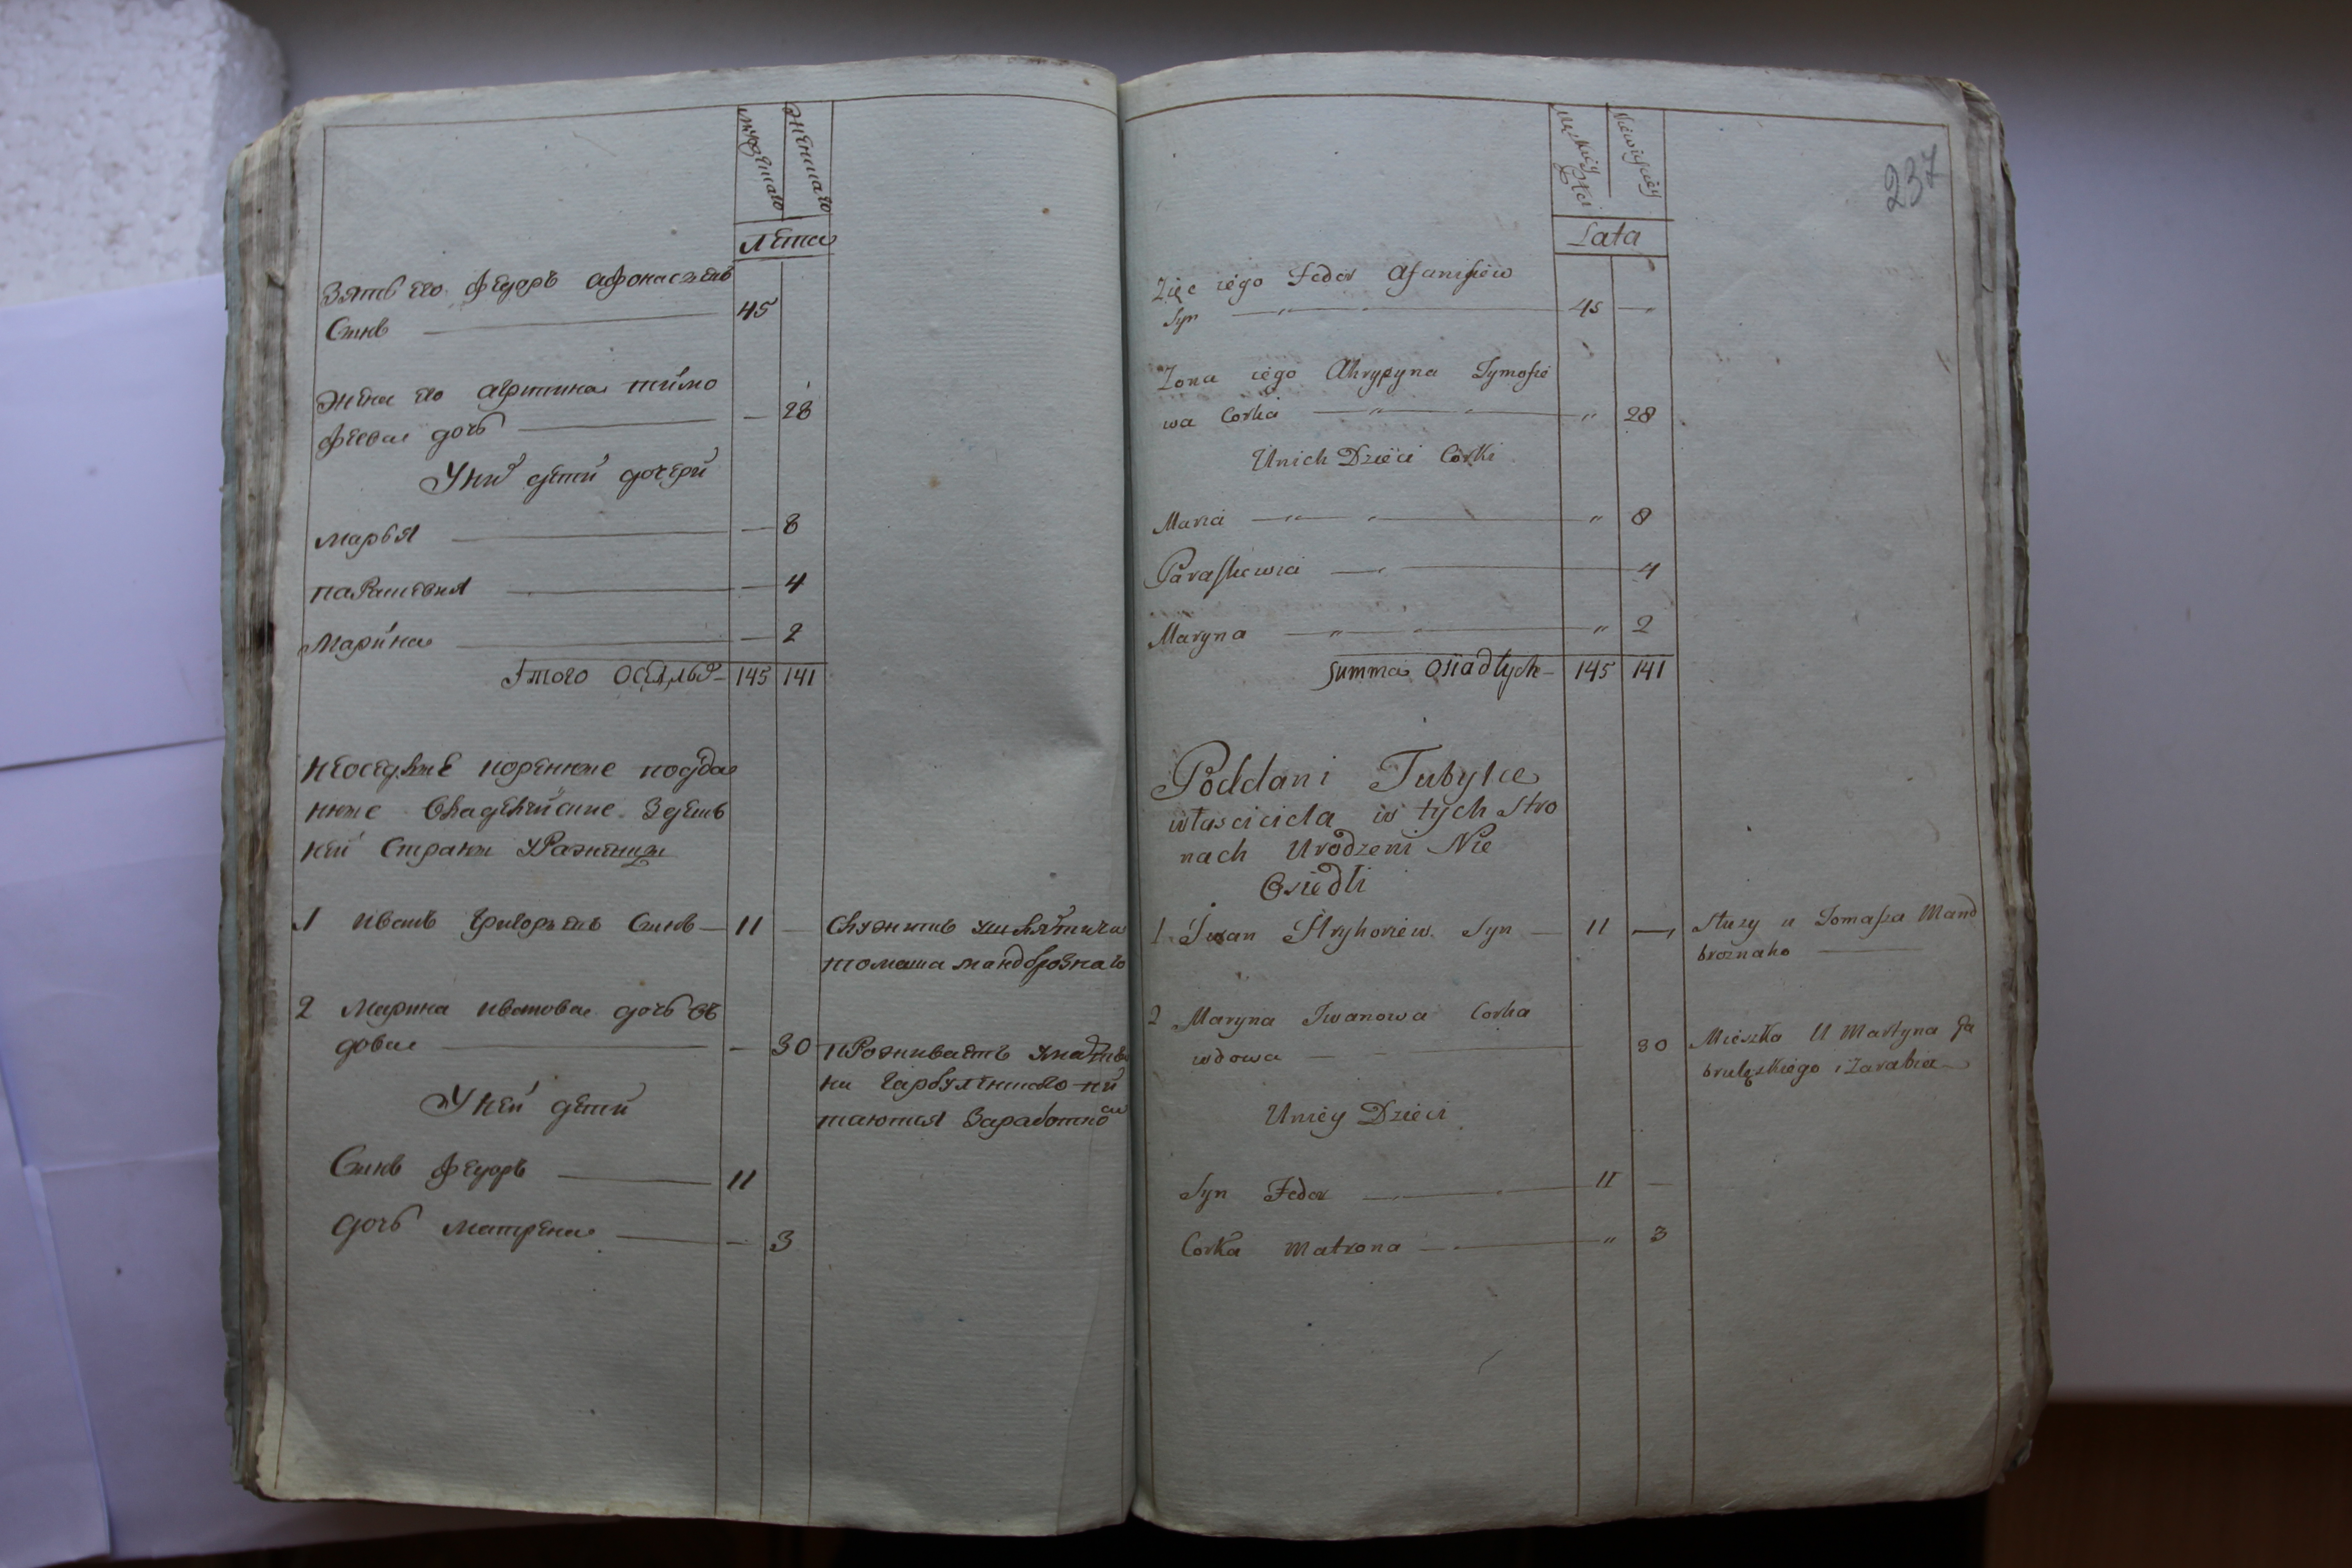 мужеска
женска
Лета
Зять его федоръ афонасьевъ
Сынъ 45
жена его агрипина тимо
феева дочь — 28
У них дети дочери
марья — 8
парасковия — 4
марина — 2
Итого оседлых 145 141
неоседлые коренные подда
ные владельческие здешь
ней Страны урожинцы
1 иванъ григорьевъ Сынъ 11 — Служитъ у шляхтича
томаша мандброзкаго
2 марина иванова дочь въ
дова — 30 проживаетъ
У ней дети питаются Заработкой
Сынъ федоръ 11
дочь матрена — 3
237
Męzkiey Płci
Niewieściey
Lata
Zięc iego Fedor Afanisiew
Syn 45 —
Zona iego Ahrypyna Tymofie
wa Corka " 28
Unich Dzieci Corki
Maria " 8
Paraskiewia 4
Maryna " 2
Summa Osiadłych 145 141
Poddani Tubylce
właściciela w tych Stro
nach Urodzeni Nie
Osiedli
1 Iwan Hryhoriew Syn — 11 — Służy u Tomasza Mand
brożnaho
2 Maryna Iwanowa Corka
wdowa — 30 Mieszka U Martyna
i Zarabia
Uniey Dzieci
Syn Fedor 11 —
Corka Matrona " 3